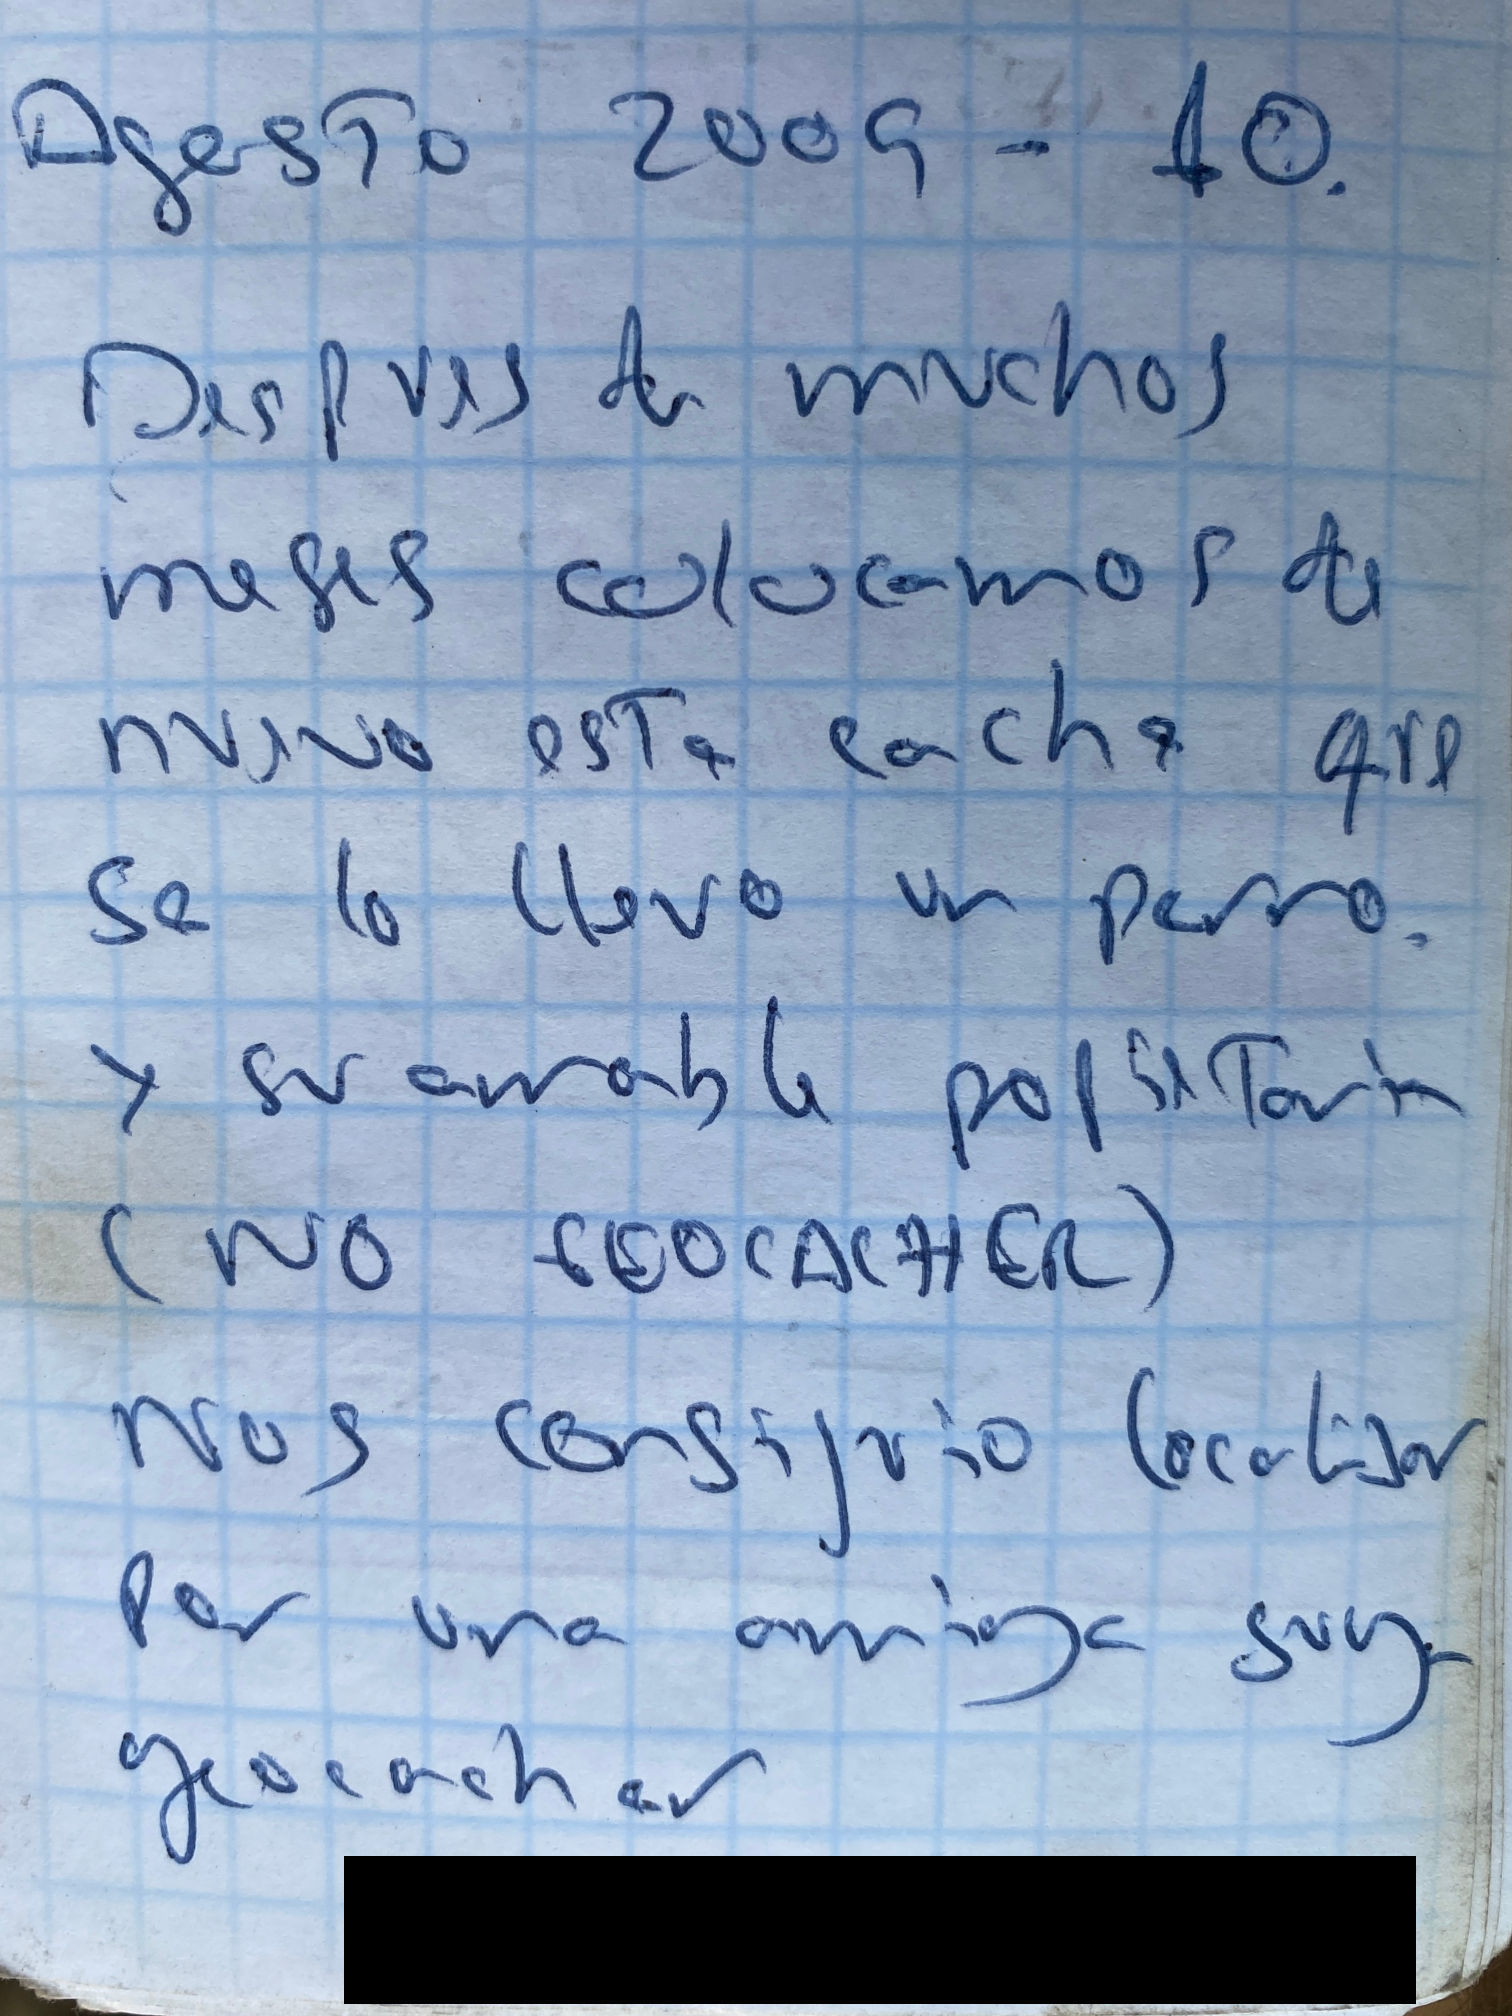 Agosto 2009 - 10.
Despues de muchos
meses colocamos de
nuevo este cache que
se lo llevo un perro.
y su amable popietaria
(NO GEOCACHER)
nos consiguio localisar
por una amiga suya
geocacher